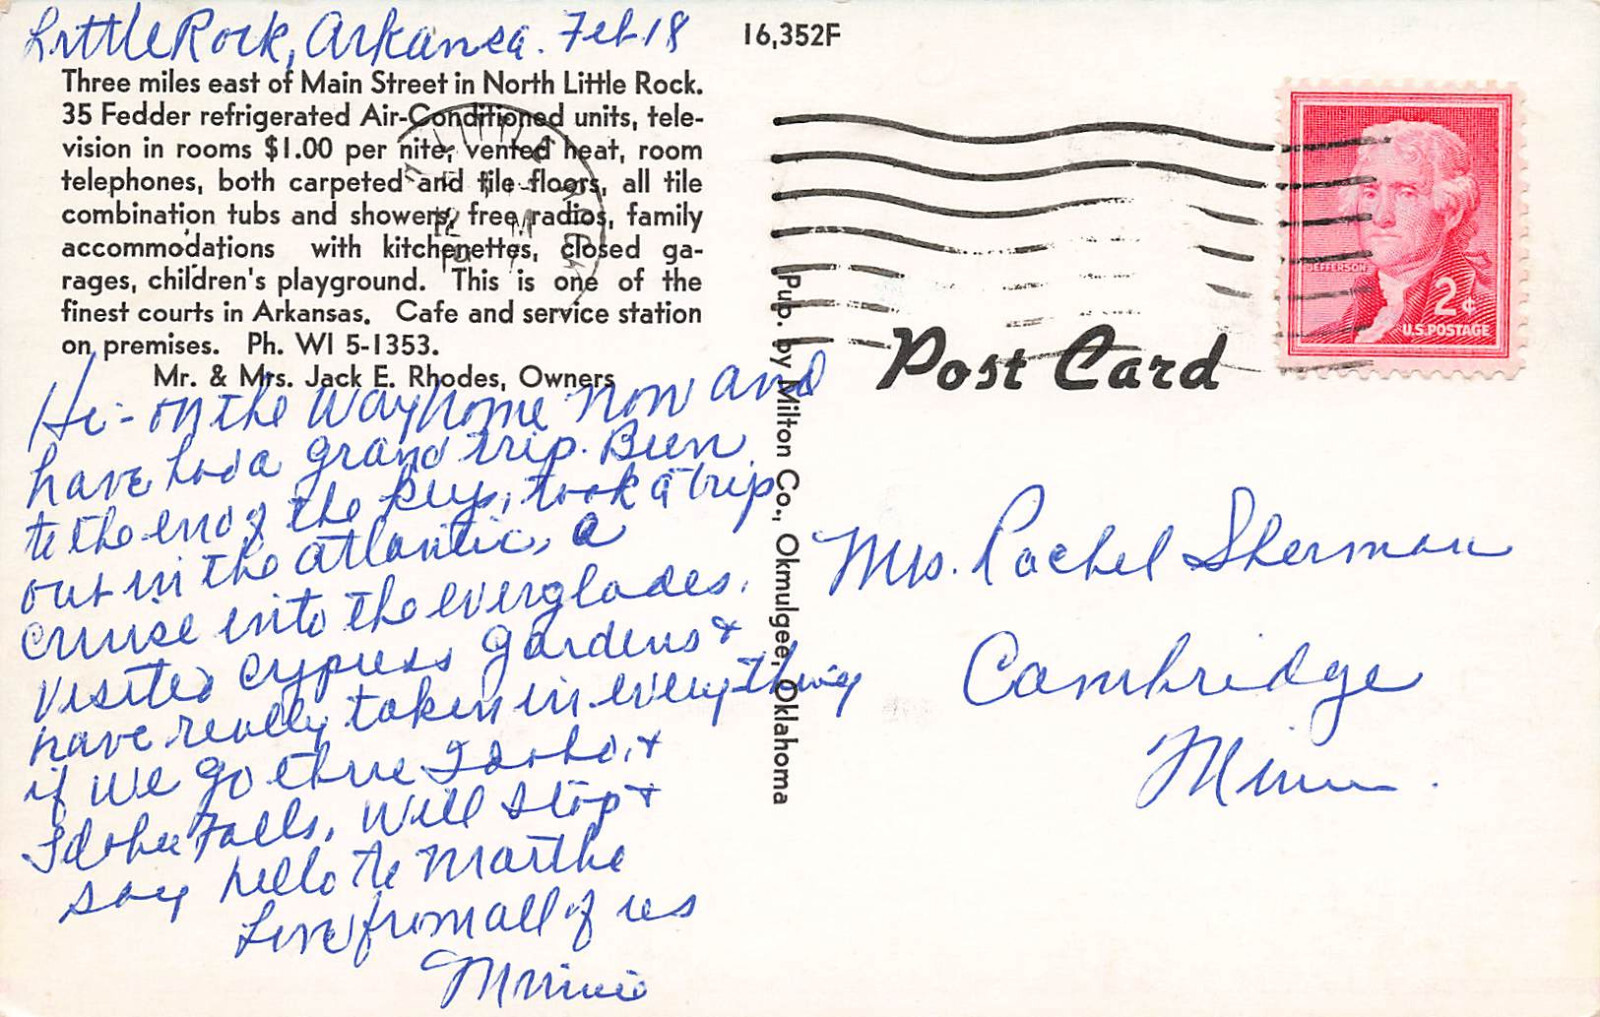 Little Rock, Arkansa. Feb 18
16,352F
Three miles east of Main Street in North Little Rock.
35 Fedder refrigerated Air-Conditioned units, tele-
vision in rooms $1.00 per nite, vented heat, room
telephones, both carpeted and tile floors, all tile
combination tubs and showers, free radios, family
accommodations with kitchenettes, closed ga-
rages, children's playground. This is one of the
finest courts in Arkansas. Cafe and service station
on premises. Ph. WI 5-1353.
Mr. & Mrs. Jack E. Rhodes, Owners
Hi - on the way home now and
have had a grand trip. Been
to the end of the Keys, took a trip
out in the Atlantic, a
cruise into the everglades.
Visited Cypress Gardens &
have really taken in everything
if we go thru Idaho, &
Idaho Falls, will stop &
say hello to Marthe
Love from all of us
Minnie
Pub. by Milton Co., Okmulgee, Oklahoma
Post Card
JEFFERSON
2¢
U.S. POSTAGE
Mrs. Rachel Sherman
Cambridge
Minn.